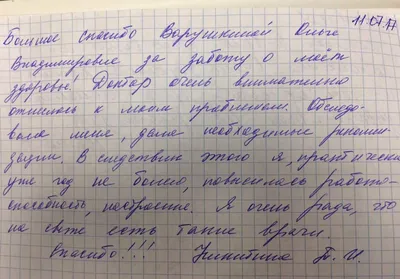 11.07.17
Большое спасибо Варушкиной Ольге
Владимировне за заботу о моём
здоровье! Доктор очень внимательно
отнеслось к моим проблемам. Обследо-
вала меня, дала необходимые рекомен-
дации. В следствии этого я, практически
уже год не болею, повысилась работо-
способность, настроение. Я очень рада, что
на свете есть такие врачи.
Спасибо!!! Никитина Т. И.